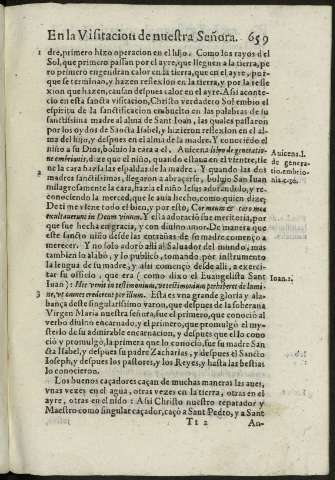 En la Visitacion de nuestra Señora. 659
1 dre, primero hizo operacion en el hijo. Como los rayos del
Sol, que primero passan por el ayre, que lleguen a la tierra, pe
ro primero engendran calor en la tierra, que en el ayre, por-
que se terminan, y hazen reflexion en la tierra, y por la refle
xion que hazen, causan despues calor en el ayre. Assi aconte-
cio en esta sanctificacion, Christo verdadero Sol embio el
espiritu de la sanctificacion embuelto en las palabras de su
sanctissima madre al alma de Sant Ioan, las quales passaron
por los oydos de Sancta Isabel, y hizieron reflexion en el al-
ma del hijo, y despues en el alma de la madre. Y conociẽdo el
niño a su Dios, boluio la cara a el. Auicena libro de generatio-
ne embrionis, dize que el niño, quando esta en el vientre, tie
2 ne la cara hazia las espaldas de la madre. Y quando las dos
madres sanctissimas, llegaron a abraçarse, boluio San Iuan
milagrosamente la cara, hazia el niño Iesus adorandolo, y re-
conociendo la merced, que le auia hecho, como quien dize:
De ti me viene todo el bien, y por esto, Cor meum & caro mea
exultauerunt in Deum viuum. Y esta adoracion fue meritoria, por
que fue hecha en gracia, y con diuino amor. De manera que
este sancto niño desde las entrañas de su madre començo a
merecer. Y no solo adorò alli al Saluador del mundo, mas
tambien lo alabò, y lo publicò, tomando por instrumento
la lengua de su madre, y alli començo desde alli, a exerci-
tar su officio, que era (como dixo el Euangelista Sant
Iuan) Hic venit in testimonium, vt testimonium perhiberet de lumi-
ne, vt omnes crederent per illum. Esta es vna grande gloria y ala-
3 bança deste singularissimo varon, que despues de la soberana
Virgen Maria nuestra señora, fue el primero, que conociò al
verbo diuino encarnado, y el primero, que promulgò el my-
sterio de su admirable encarnacion, y despues que el lo cono
ciò y promulgò, la primera que lo conocio, fue su madre San
cta Isabel, y despues su padre Zacharias, y despues el Sancto
Ioseph, y despues los pastores, y los Reyes, y hasta las bestias
lo conocieron.
Los buenos caçadores caçan de muchas maneras las aues,
vnas vezes en el agua, otras vezes en la tierra, otras en el
ayre, otras en el nido: Assi Christo nuestro reparador y
Maestro como singular caçador, caçò a Sant Pedro, y a Sant
Tt 2 An-
Auicena. l.
de genera-
tio. embrio-
nis.
Ioan. 1.